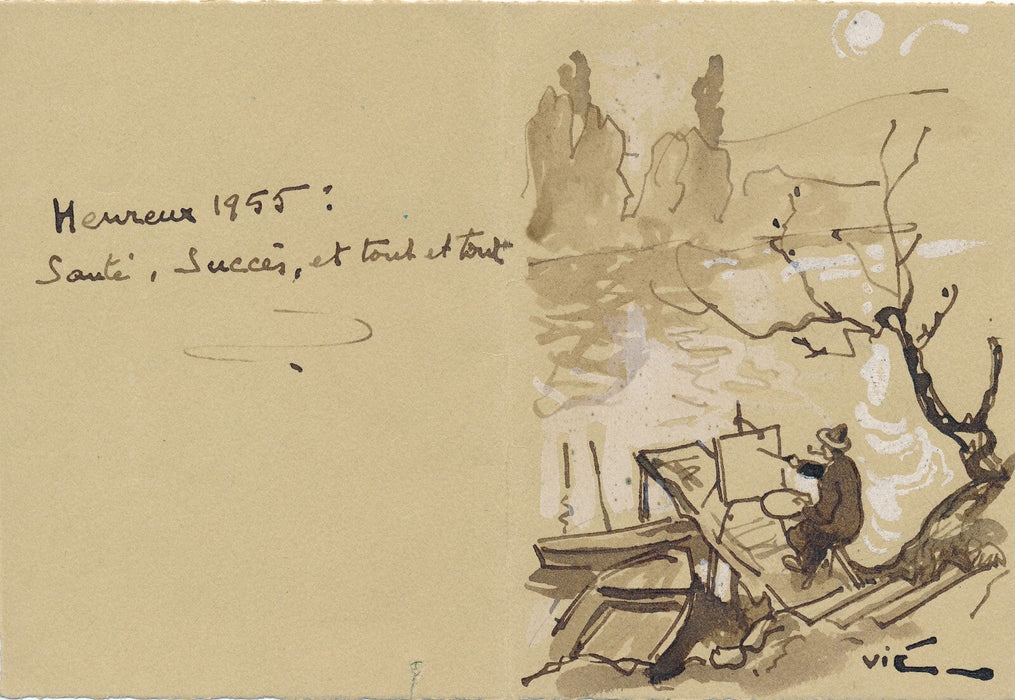 Heureux 1955 :
Santé, Succès, et tout et tout
vic